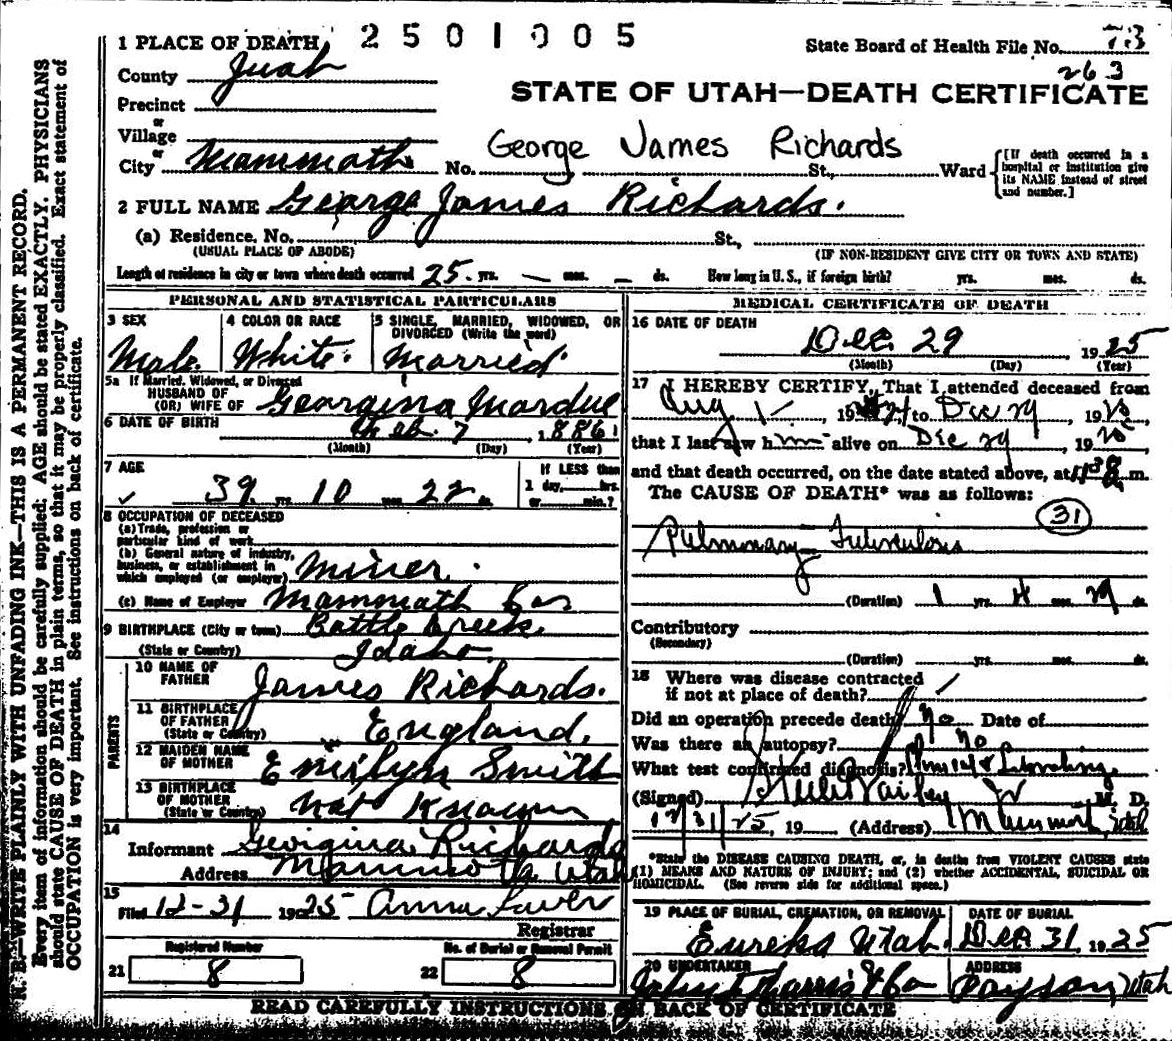 1 PLACE OF DEATH 2501005 State Board of Health File No. 73
County Juab 263
STATE OF UTAH—DEATH CERTIFICATE
Precinct
or
Village
or
City Mammoth No. George James Richards St., Ward {[If death occurred in a hospital or institution give its NAME instead of street and number.]
2 FULL NAME George James Richards.
(a) Residence. No. St.,
(USUAL PLACE OF ABODE) (IF NON-RESIDENT GIVE CITY OR TOWN AND STATE)
Length of residence in city or town where death occurred 25 yrs. — mos. — ds. How long in U. S., if foreign birth? yrs. mos. ds.
PERSONAL AND STATISTICAL PARTICULARS
3 SEX 4 COLOR OR RACE 5 SINGLE, MARRIED, WIDOWED, OR
DIVORCED (Write the word)
Male. White. Married
5a If Married, Widowed, or Divorced
HUSBAND OF
(OR) WIFE OF Georgina Mardue
6 DATE OF BIRTH Feb. 7, 1886
(Month) (Day) (Year)
7 AGE If LESS than
1 day, hrs.
39 yrs. 10 mos. 22 ds. or min.?
8 OCCUPATION OF DECEASED
(a) Trade, profession or
particular kind of work
(b) General nature of industry,
business, or establishment in
which employed (or employer) Miner.
(c) Name of Employer Mammoth
9 BIRTHPLACE (City or town) Battle Creek,
(State or Country) Idaho.
PARENTS
10 NAME OF
FATHER James Richards.
11 BIRTHPLACE
OF FATHER
(State or Country) England,
12 MAIDEN NAME
OF MOTHER Emilyn Smith
13 BIRTHPLACE
OF MOTHER
(State or Country) Not Known
14
Informant Georgina Richards
Address Mammoth Utah
15
Filed 12-31 1925 Anna
Registrar
Registered Number No. of Burial or Removal Permit
21 8 22 8
MEDICAL CERTIFICATE OF DEATH
16 DATE OF DEATH
Dec. 29, 1925
(Month) (Day) (Year)
17 I HEREBY CERTIFY, That I attended deceased from
Aug 1 — 1924 to Dec 29, 1925
that I last saw him alive on Dec 29, 1925
and that death occurred, on the date stated above, at m.
The CAUSE OF DEATH* was as follows:
31
Pulmonary Tuberculosis
(Duration) 1 yrs. 4 mos. 29 ds.
Contributory
(Secondary)
(Duration) yrs. mos. ds.
18 Where was disease contracted
if not at place of death?
Did an operation precede death? No Date of
Was there an autopsy? No
What test confirmed diagnosis?
(Signed) Bailey Jr M. D.
12/31/25, 19 (Address) Mammoth, Utah
*State the DISEASE CAUSING DEATH, or, in deaths from VIOLENT CAUSES state
(1) MEANS AND NATURE OF INJURY; and (2) whether ACCIDENTAL, SUICIDAL OR
HOMICIDAL. (See reverse side for additional space.)
19 PLACE OF BURIAL, CREMATION, OR REMOVAL DATE OF BURIAL
Eureka Utah. Dec 31, 1925
20 UNDERTAKER ADDRESS
Harris & Co Payson, Utah
READ CAREFULLY INSTRUCTIONS ON BACK OF CERTIFICATE
N. B.—WRITE PLAINLY WITH UNFADING INK—THIS IS A PERMANENT RECORD.
Every item of information should be carefully supplied. AGE should be stated EXACTLY. PHYSICIANS
should state CAUSE OF DEATH in plain terms, so that it may be properly classified. Exact statement of
OCCUPATION is very important. See instructions on back of certificate.